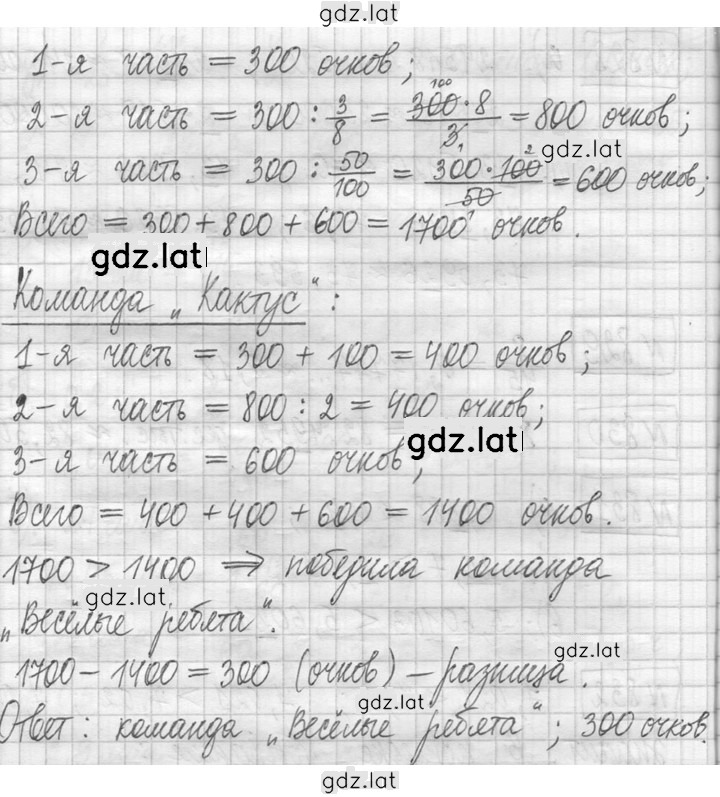 gdz.lat
1-я часть = 300 очков;
2-я часть = 300 : 3/8 = 300·8/3 = 800 очков;
100
1
gdz.lat
3-я часть = 300 : 50/100 = 300·100/50 = 600 очков;
2
1
Всего = 300 + 800 + 600 = 1700 очков.
gdz.lat
Команда „Кактус“:
1-я часть = 300 + 100 = 400 очков;
2-я часть = 800 : 2 = 400 очков;
gdz.lat
3-я часть = 600 очков;
Всего = 400 + 400 + 600 = 1400 очков.
1700 > 1400 ⇒ победила команда
gdz.lat
„Весёлые ребята“.
gdz.lat
1700 - 1400 = 300 (очков) – разница.
gdz.lat
Ответ: команда „Весёлые ребята“; 300 очков.
gdz.lat